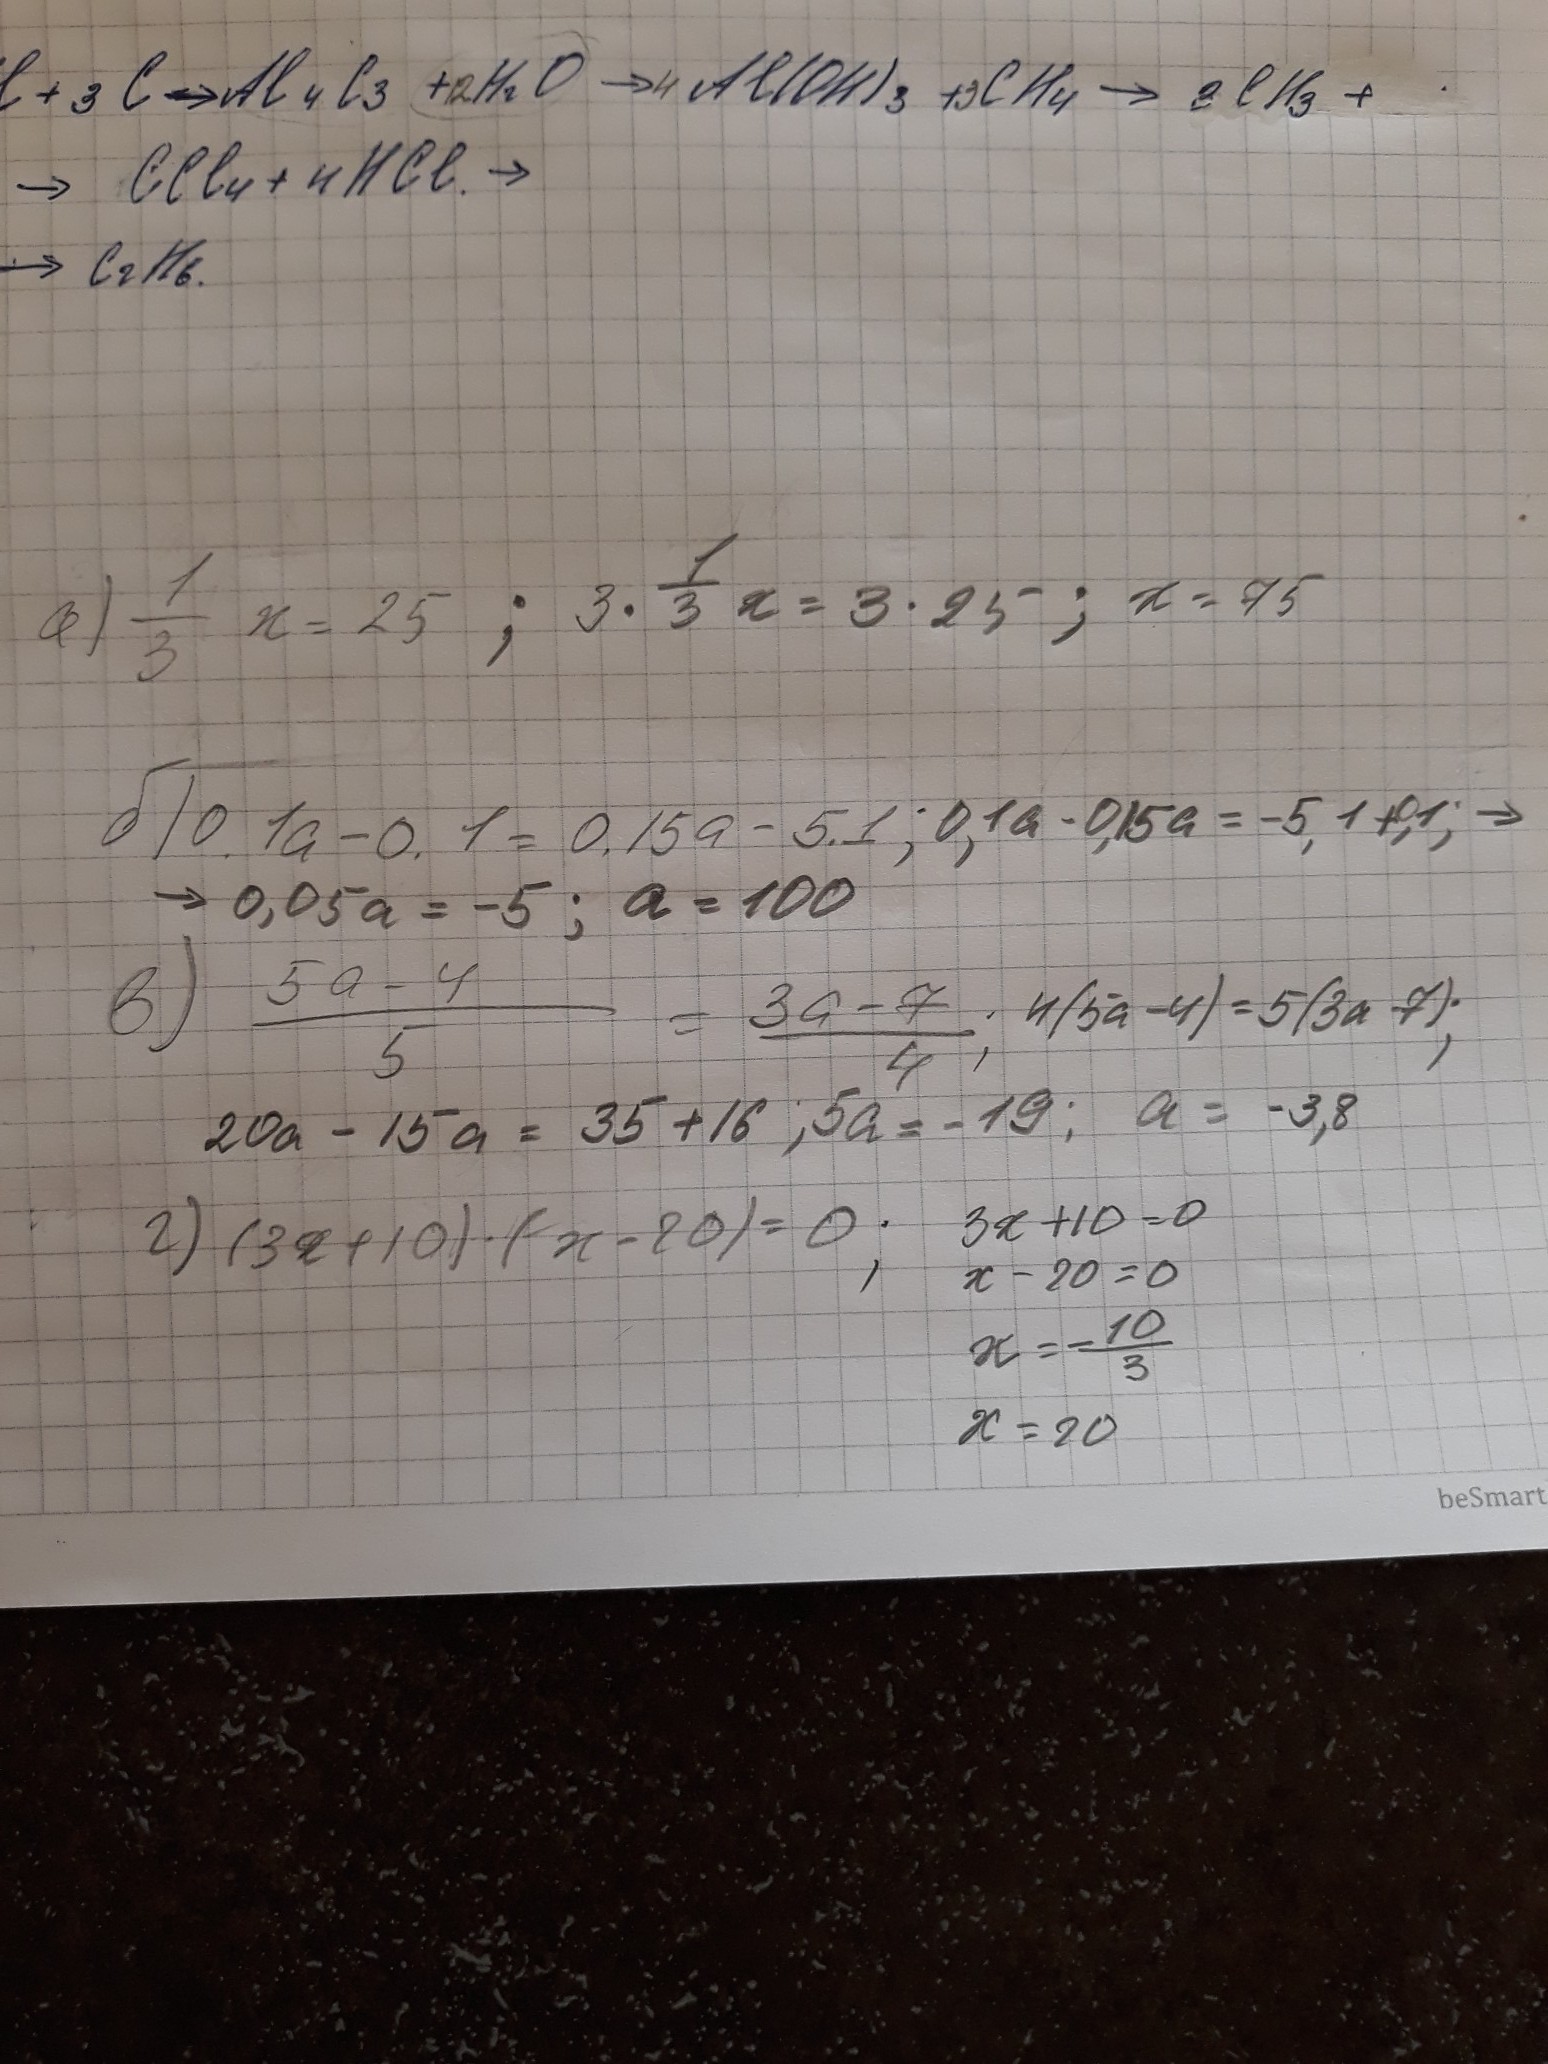 l + 3 C → Al4C3 + 12H2O → 4 Al(OH)3 + 3CH4 → 2CH3 +
→ CCl4 + 4HCl. →
→ C2H6.
а) 1/3 x = 25 ; 3 · 1/3 x = 3 · 25 ; x = 75
б) 0.1a - 0.1 = 0.15a - 5.1 ; 0,1a - 0,15a = -5,1 + 0,1; →
→ 0,05a = -5 ; a = 100
в) (5a - 4)/5 = (3a - 7)/4 ; 4(5a - 4) = 5(3a - 7);
20a - 15a = 35 + 16 ; 5a = -19; a = -3,8
г) (3x + 10) · (-x - 20) = 0 ; 3x + 10 = 0
x - 20 = 0
x = -10/3
x = 20
beSmart